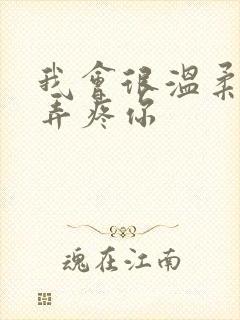 我會很溫柔
弄疼你
魂在江南